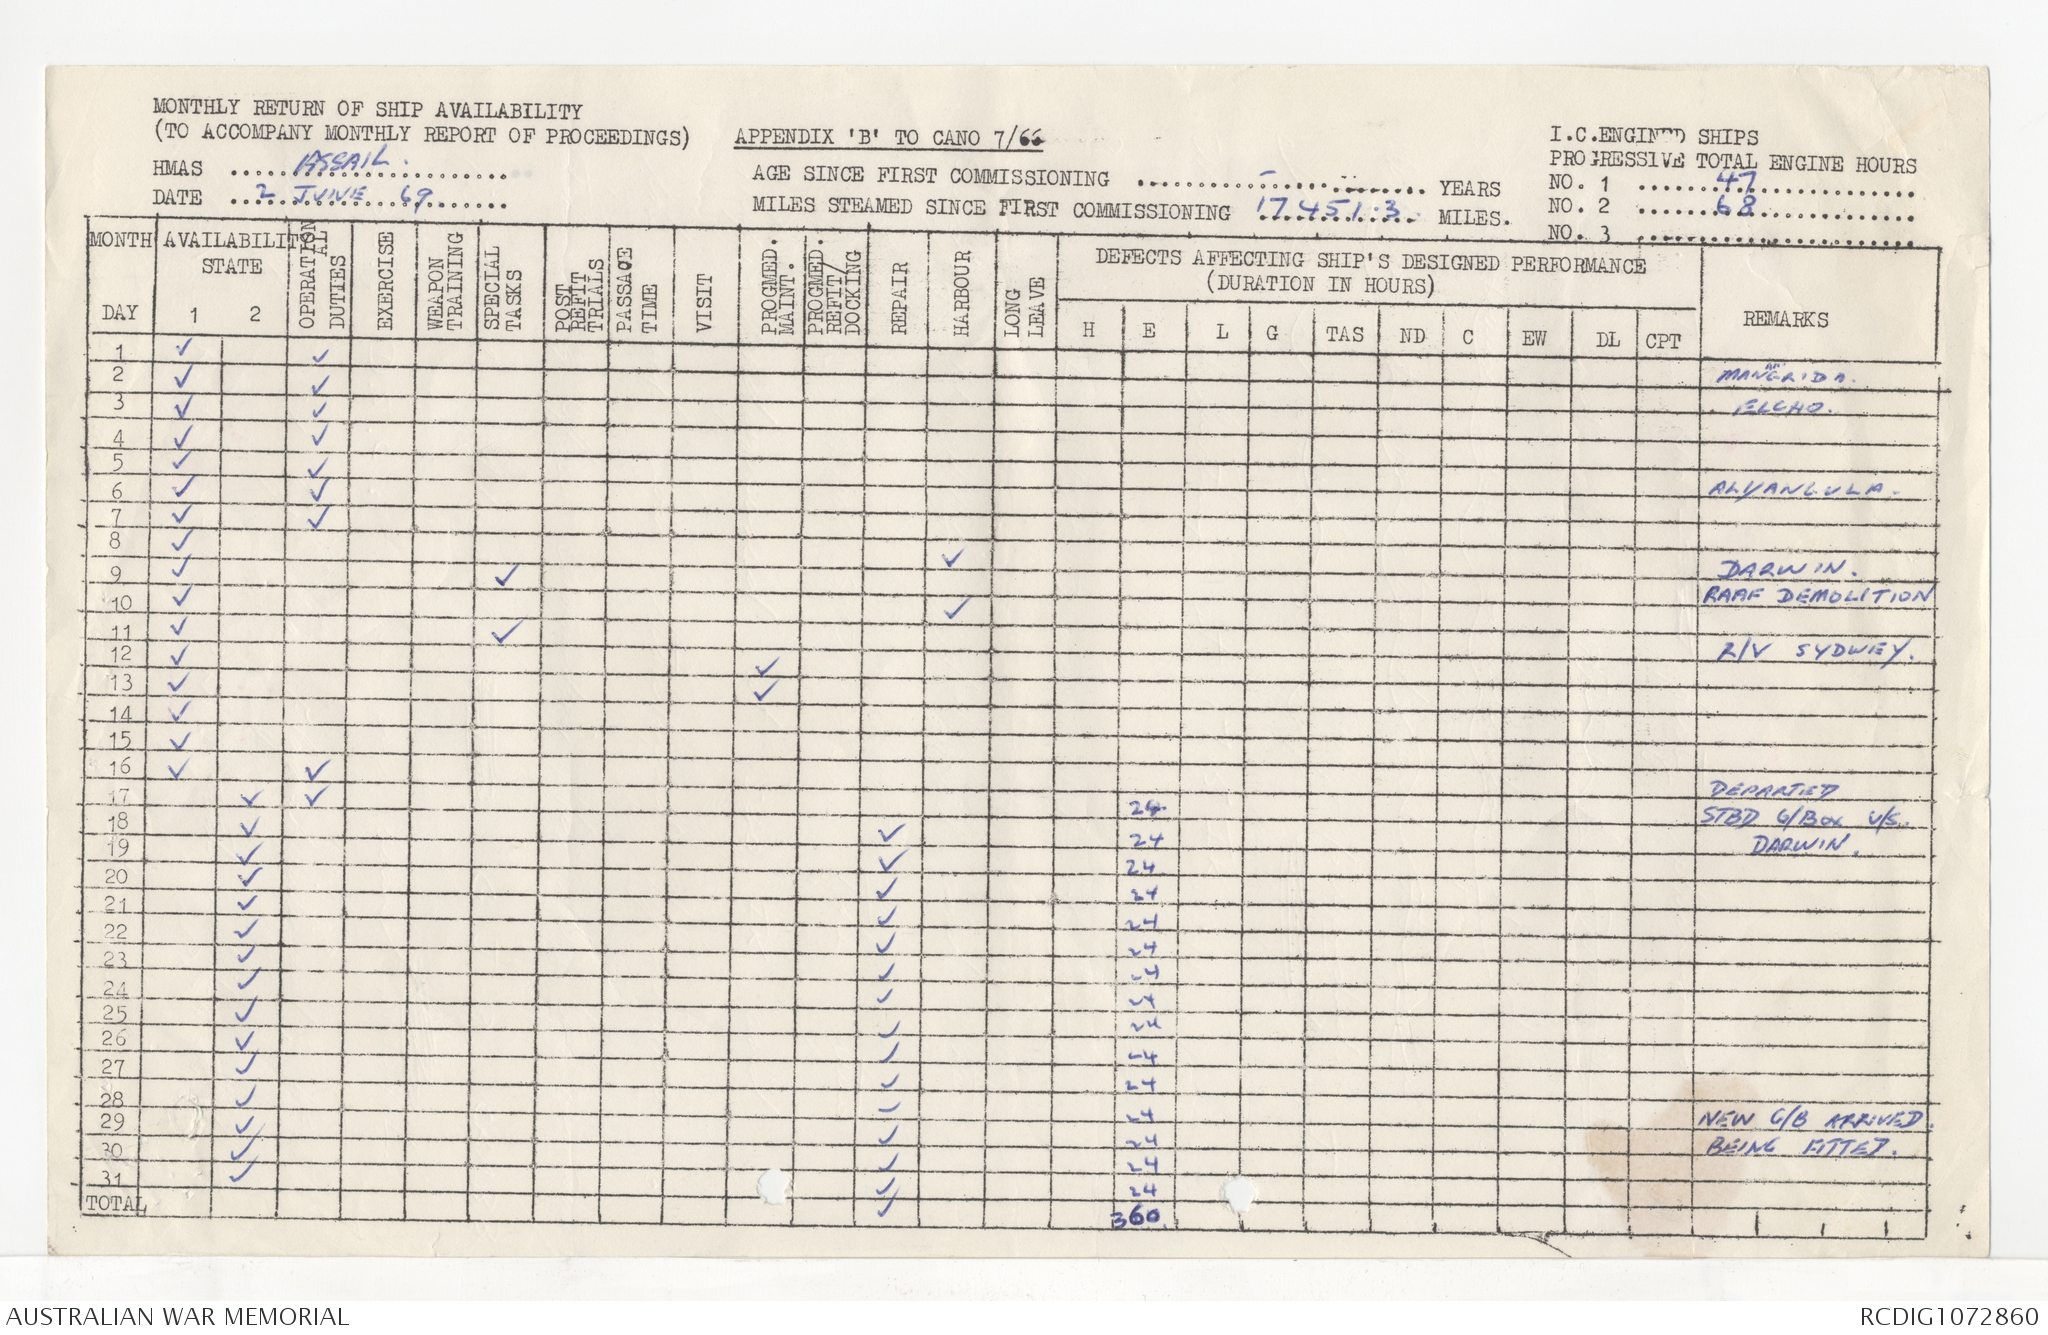 MONTHLY RETURN OF SHIP AVAILABILITY
(TO ACCOMPANY MONTHLY REPORT OF PROCEEDINGS)
APPENDIX 'B' TO CANO 7/66
I.C.ENGINED SHIPS
PROGRESSIVE TOTAL ENGINE HOURS
HMAS ASSAIL.
DATE 2 JUNE 69
AGE SINCE FIRST COMMISSIONING - YEARS
MILES STEAMED SINCE FIRST COMMISSIONING 17.451.3 MILES.
NO. 1 47
NO. 2 68
NO. 3
MONTH AVAILABILITY STATE
DAY 1 2
OPERATIONAL DUTIES
EXERCISE
WEAPON TRAINING
SPECIAL TASKS
POST REFIT TRIALS
PASSAGE TIME
VISIT
PROGMED. MAINT.
PROGMED. REFIT/ DOCKING
REPAIR
HARBOUR
LONG LEAVE
DEFECTS AFFECTING SHIP'S DESIGNED PERFORMANCE
(DURATION IN HOURS)
H E L G TAS ND C EW DL CPT
REMARKS
1 ✓ ✓
2 ✓ ✓ MANGRIDA.
3 ✓ ✓ ELCHO.
4 ✓ ✓
5 ✓ ✓
6 ✓ ✓ ALYANGULA.
7 ✓ ✓
8 ✓ ✓
9 ✓ ✓ DARWIN.
10 ✓ ✓ RAAF DEMOLITION
11 ✓ ✓
12 ✓ ✓ R/V SYDNEY.
13 ✓ ✓
14 ✓
15 ✓
16 ✓ ✓
17 ✓ ✓ 24 DEPARTED
18 ✓ ✓ 24 STBD G/BOX U/S.
19 ✓ ✓ 24 DARWIN.
20 ✓ ✓ 24
21 ✓ ✓ 24
22 ✓ ✓ 24
23 ✓ ✓ 24
24 ✓ ✓ 24
25 ✓ ✓ 24
26 ✓ ✓ 24
27 ✓ ✓ 24
28 ✓ ✓ 24
29 ✓ ✓ 24 NEW G/B ARRIVED.
30 ✓ ✓ 24 BEING FITTED.
31 ✓ ✓ 24
TOTAL ✓ 360
AUSTRALIAN WAR MEMORIAL
RCDIG1072860